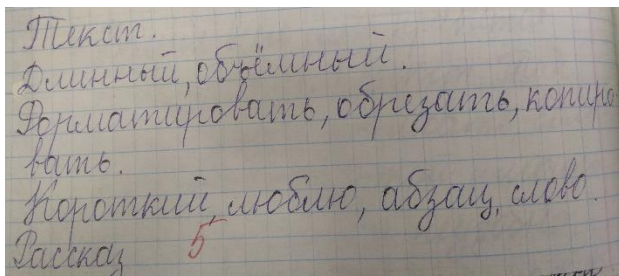 Текст.
Длинный, объёмный.
Форматировать, обрезать, копиро
вать.
Короткий, люблю, абзац, слово.
Рассказ 5